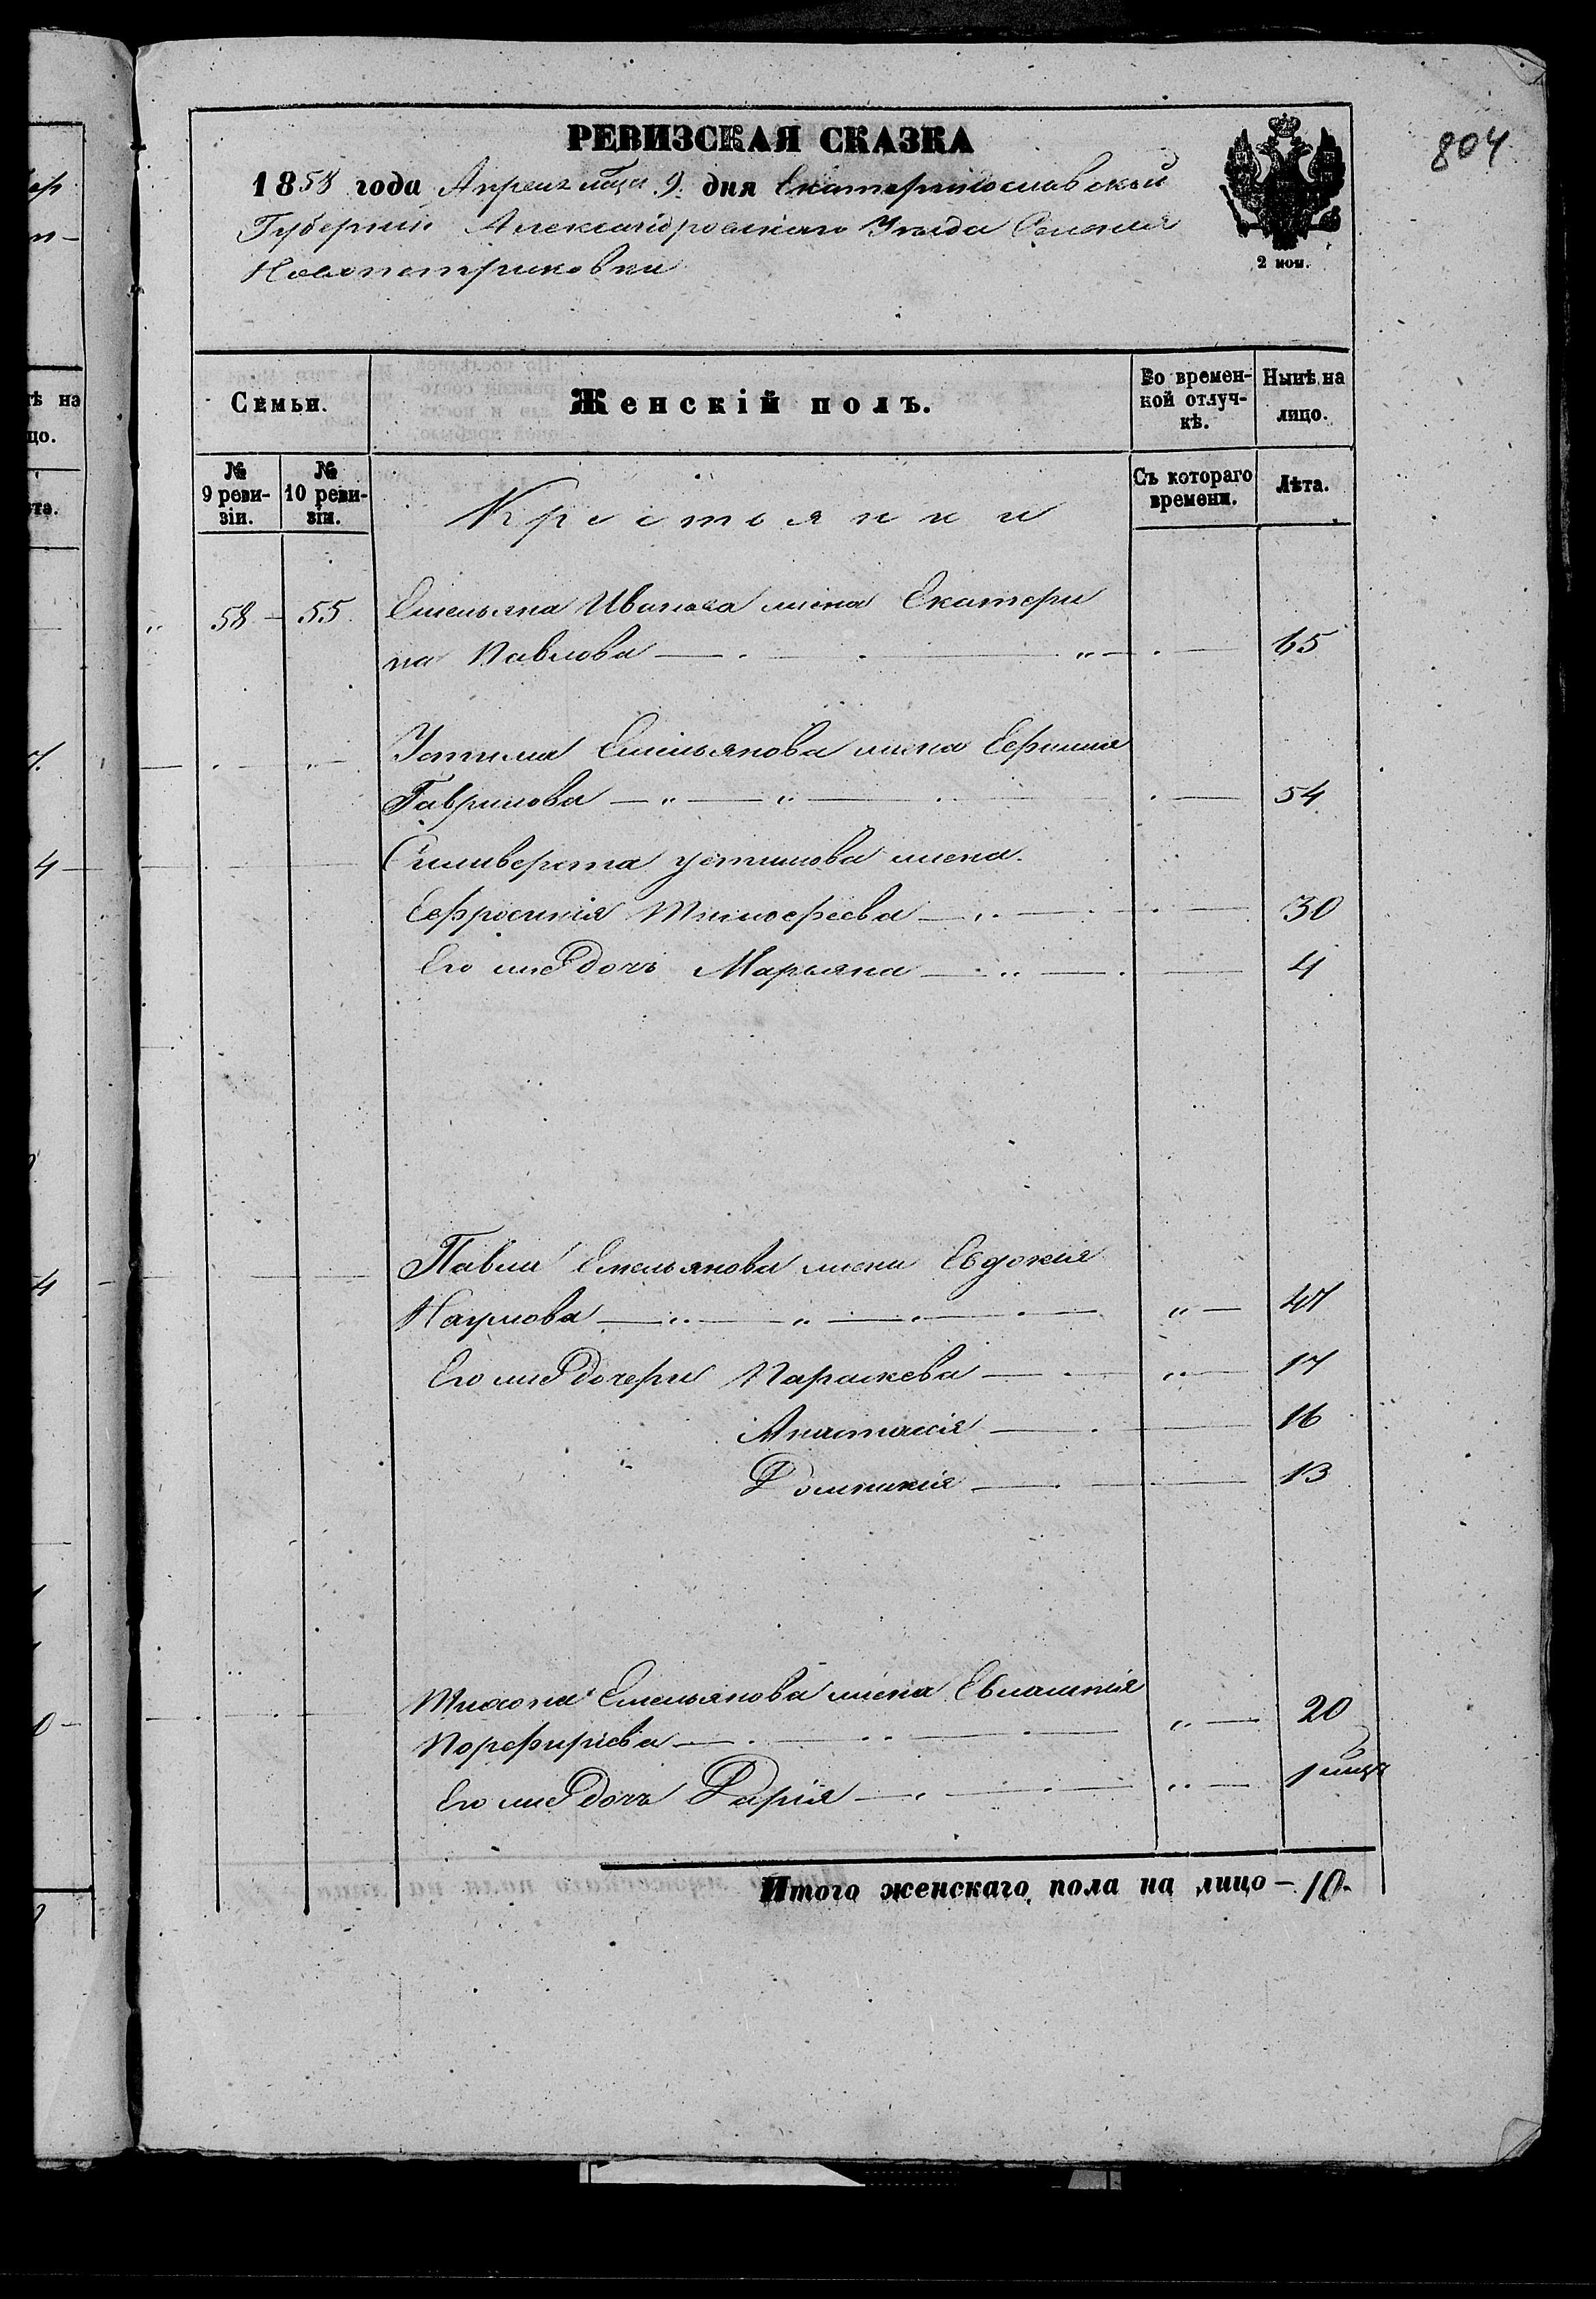 804
РЕВИЗСКАЯ СКАЗКА
1858 года Апреля мца 9. дня Екатеринославской
Губернии Александровскаго Уѣзда Селенія
Новопетриковки
2 коп.
Семьи.
Женскій полъ.
Во времен-
ной отлуч-
кѣ.
Нынѣ на
лицо.
№
9 реви-
зіи.
№
10 реви-
зіи.
Крестьянки
Съ котораго
времени.
Лѣта.
58 - 55. Емельяна Иванова жена Екатери
на Павлова — 65
Устима Емельянова жена
Гаврилова — 54
Сильверста Устимова жена
Ефросинія Тимофеева — 30
Его же дочь Марьяна — 4
Павла Емельянова жена Евдокия
Наумова — 47
Его же дочери Параскева — 17
Анастасія — 16
Домникія — 13
Тихона Емельянова жена Евлампія
Порфиріева — 20
Его же дочь Дарія — 1 мцъ
Итого женскаго пола на лицо - 10.